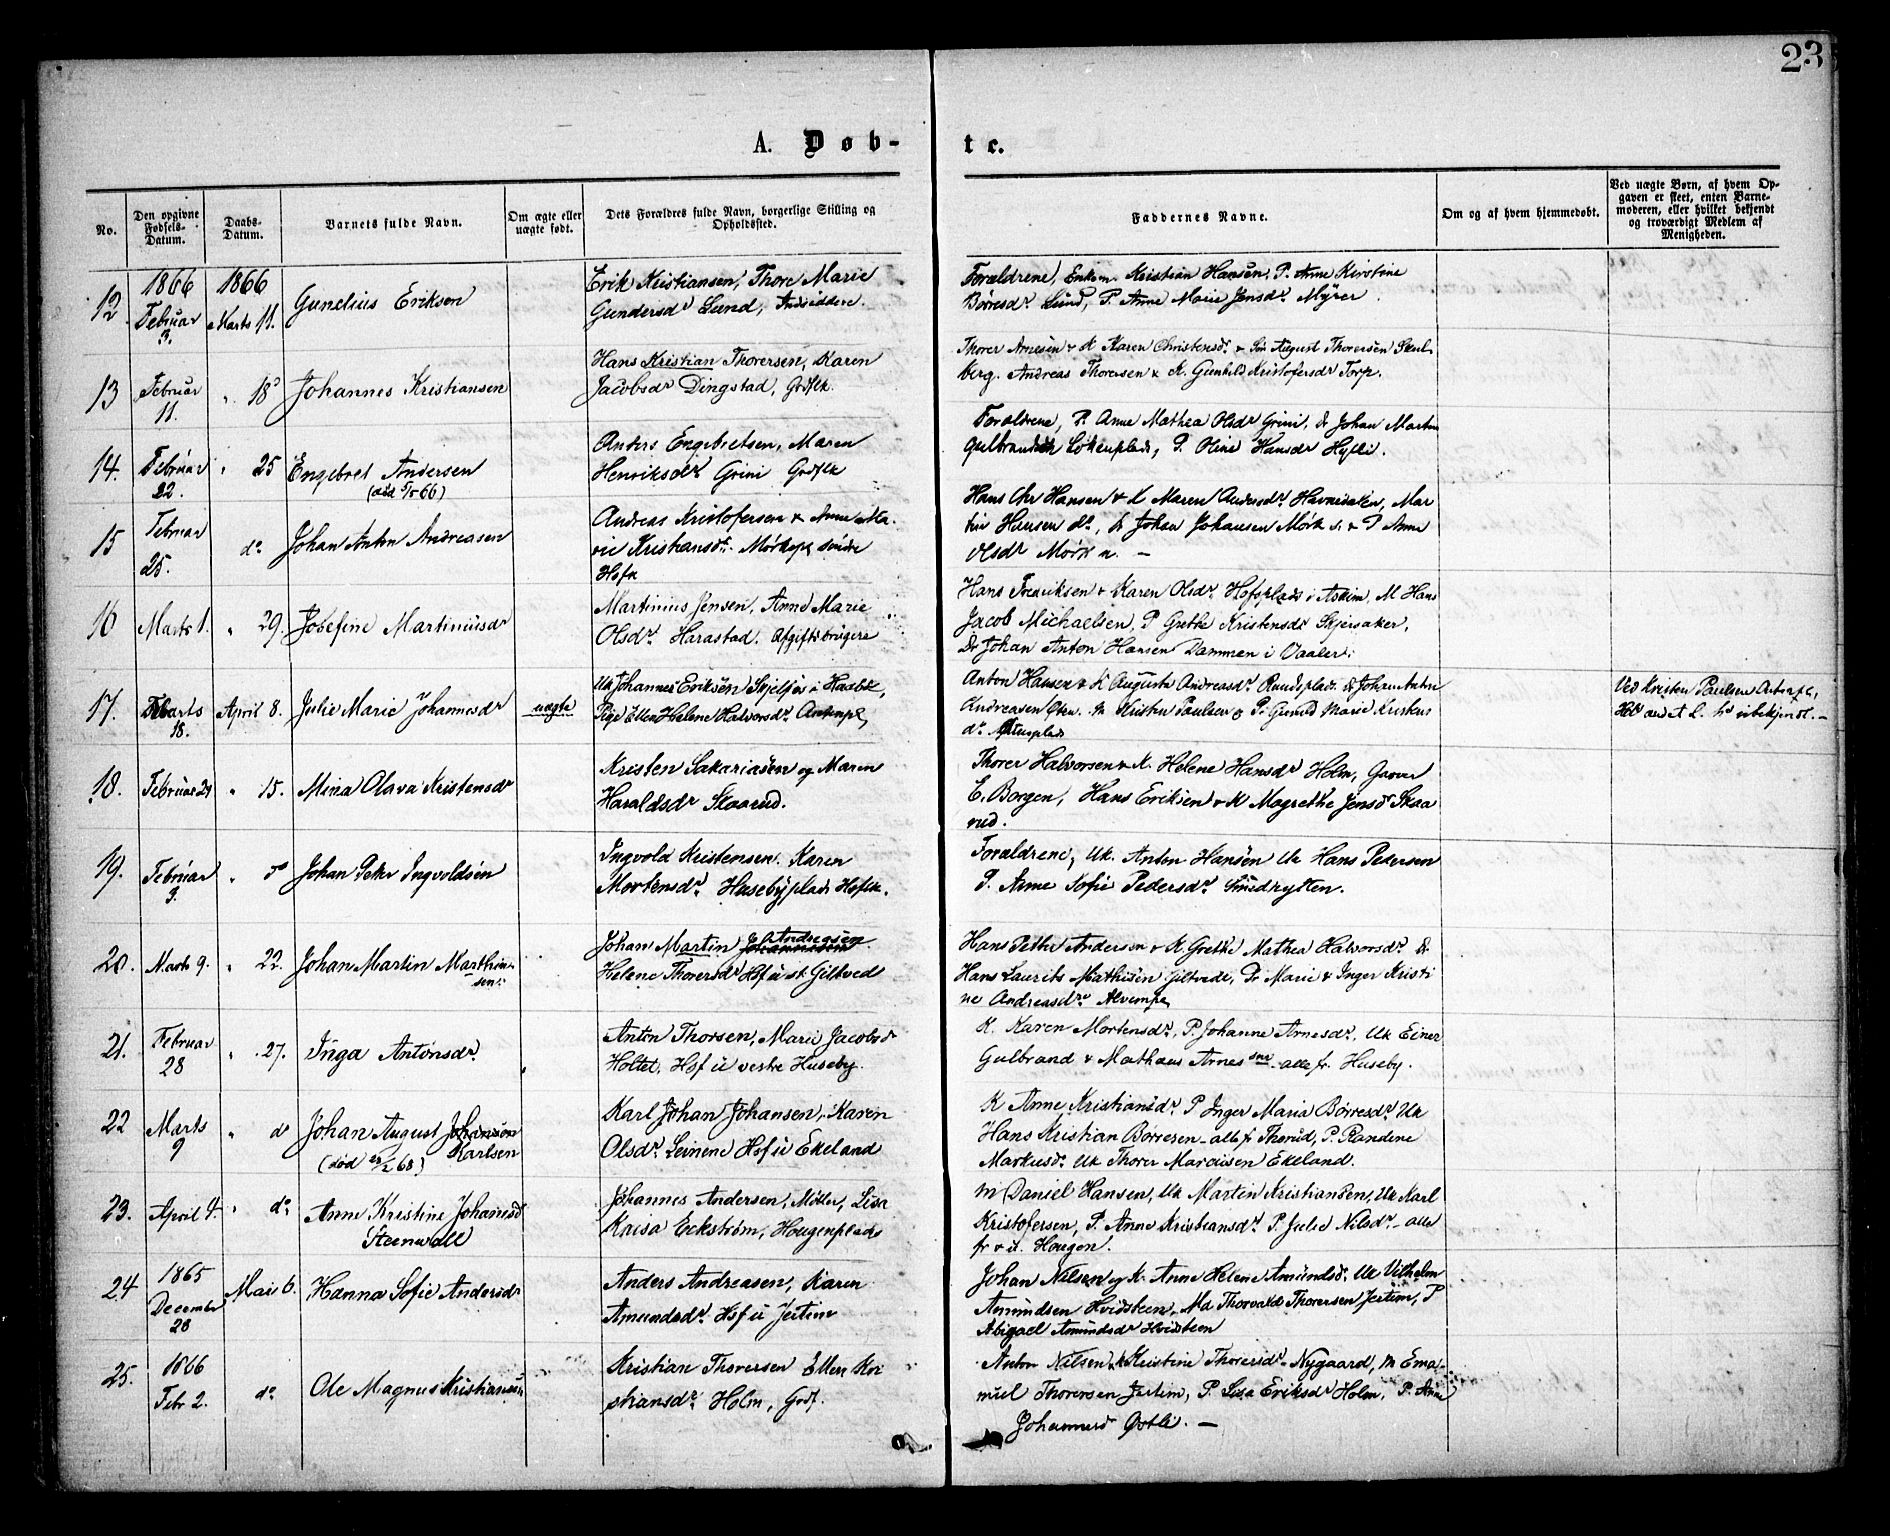 23
A. Døb-
te.
No.
Den opgivne Fødsels-Datum.
Daabs-Datum.
Barnets fulde Navn.
Om ægte eller uægte født.
Dets Forældres fulde Navn, borgerlige Stilling og Opholdssted.
Faddernes Navne.
Om og af hvem hjemmedøbt.
Ved uægte Børn, af hvem Opgaven er skeet, enten Barnemoderen, eller hvilket bekjendt og troværdigt Medlem af Menigheden.
12
1866
Februar
3.
1866
Marts 11.
Gunelius Eriksen
Erik Kristiansen, Thore Marie
Gundersdr Lund,
Forældrene, Enkem. Kristian Hansen, P. Anne Kirstine
Børresdr Lund, P. Anne Marie Jensdr Myrer.
13
Februar
11.
" 18
Johannes Kristiansen
Hans Kristian Thorersen, Karen
Jacobsdr Dingstad, Grdfk.
Thorer Arnesen & K Karen Christensdr & Søn August Thorersen Skul-
berg. Andreas Thorersen & K. Gunhild Kristofersdr Torp.
14.
Februar
22.
" 25
Engebret Andersen
(død 5/5 66)
Anders Engebretsen, Maren
Henriksdr Grini Grdfk
Forældrene, P. Anne Mathea Olsdr Grini, Dr Johan Martin
Gulbrandsen Løkenplads, P. Oline Hansdr Hylli.
15
Februar
25.
do
Johan Anton Andreasen
Andreas Kristofersen & Anne Ma-
rie Kristiansdr. Mørkepl søndre
Hsfk
Hans Chr Hansen & K Maren Andersdr Havnesaken, Mar
tin Hansen do, Dr Johan Johansen Mørk s. & P Anne
Olsdr Mørk n. —
16
Marts 1.
" 29.
Josefine Martiniusdr
Martinius Jensen, Anne Marie
Olsdr. Harastad. Afgiftsbrugere
Hans Fredriksen & Karen Olsdr. Hofsplads i Askim, M Hans
Jacob Michaelsen, P Grethe Kristensdr Skjersaker,
Dr Johan Anton Hansen Dammen i Vaaler.
17.
Marts
18.
April 8.
Julie Marie Johannesdr
uægte
Uk Johannes Eriksen Skjelfos i Haabøl,
Pige Ellen Helene Halvorsdr.
Anton Hansen & K Augusta Andreasdr. Rundsplads. Dr Johan Anton
Andreasen M Kristen Paulsen & P. Gunild Marie
Ved Kristen Paulsen
18.
Februar 21
" 15.
Mina Olava Kristensdr
Kristen Sakariasen og Maren
Haraldsdr Skaarud.
Thorer Halvorsen & K. Helene Hansdr Holm,
E. Borgen, Hans Eriksen & K Magrethe Jensdr Skaa
rud.
19.
Februar
3.
" do
Johan Peter Ingvoldsen
Ingvold Kristensen. Karen
Mortensdr. Husebyplads Hsfk.
Forældrene, Uk. Anton Hansen Uk Hans Pedersen
P. Anne Sofie Pedersdr. Smedhytten.
20.
Marts 9.
" 22.
Johan Martin Marthin-
sen.
Johan Martin Andreasen
Helene Thorersdr Hsf u st Giltved
Hans Petter Andersen & K Grethe Mathea Halvorsdr. Dr
Hans Laurits Mathisen Giltvedt, Pr Marie & Inger Kristi
ne Andreasdre
21.
Februar
28
" 27.
Inga Antonsdr.
Anton Thorsen, Marie Jacobsdr
Holtet, Hsf u vestre Huseby.
K. Karen Mortensdr, P. Johanne Arnesdr, Uk Einer
Gulbrand & Mathaus Arnes sne - alle fr. Huseby.
22
Marts
9
" do
Johan August Johansen
Karlsen
(død 28/2 68)
Karl Johan Johansen, Karen
Olsdr. Leinene Hsf u Ekeland
K Anne Kristiansdr. P Inger Maria Børresdr. Uk
Hans Kristian Børresen - alle fr Thorud, P. Randine
Markusdr. Uk Thorer Marausen Ekeland.
23.
April 4.
" do
Anne Kristine Johanesdr
Steenwall
Johannes Andersen, Møller, Lisa
Kaisa Eckstrøm, Hougenplads
M Daniel Hansen, Uk Martin Kristiansen, Uk Karl
Kristofersen, P. Anne Kristiansdr. P. Julie Nilsdr. - alle
fr & u. Hougen.
24
1865
December
28
Mai 6.
Hanna Sofie Andersdr
Anders Andreasen, Karen
Amundsdr. Hsf u Jertim
Johan Nilsen og K. Anne Helene Amundsdr. Uk Vilhelm
Amundsen Hvidsteen, Ma Thorvald Thorersen Jertim, P
Abigael Amundsdr Hvidsteen
25.
1866
Febr 2.
do.
Ole Magnus Kristiansen
Kristian Thorersen Ellen Kri
stiansdr. Holm, Grdf.
Anton Nilsen & K Kristine Thorersdr. Nygaard, M Ema-
nuel Thorersen Jertim, P. Lisa Eriksdr Holm, P. Anne
Johannesd Østli. —